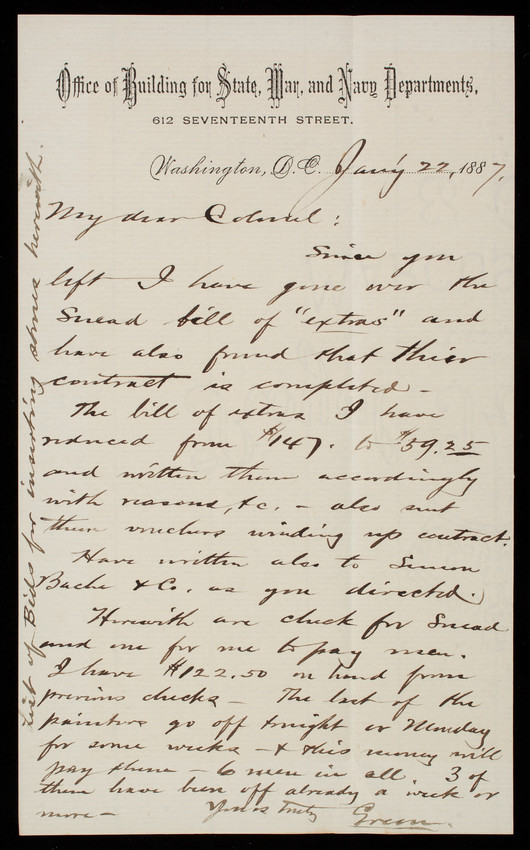 Office of Building for State, War, and Navy Departments,
612 SEVENTEENTH STREET.
Washington, D.C. Jan'y 22, 1887.
My dear Colonel:
Since you
left I have gone over the
Snead bill of "extras" and
have also found that thier
contract is completed -
The bill of extras I have
reduced from $147. to $59.25
and written them accordingly
with reasons, &c. - also sent
them vouchers winding up contract.
Have written also to Simon
Bache & Co. as you directed.
Herewith are check for Snead
and one for me to pay men.
I have $122.50 on hand from
previous checks - The last of the
painters go off tonight or Monday
for some weeks - & this money will
pay them - 6 men in all. 3 of
them have been off already a week or
more -
Yours truly
Green.
List of Bids for inserting stones herewith.